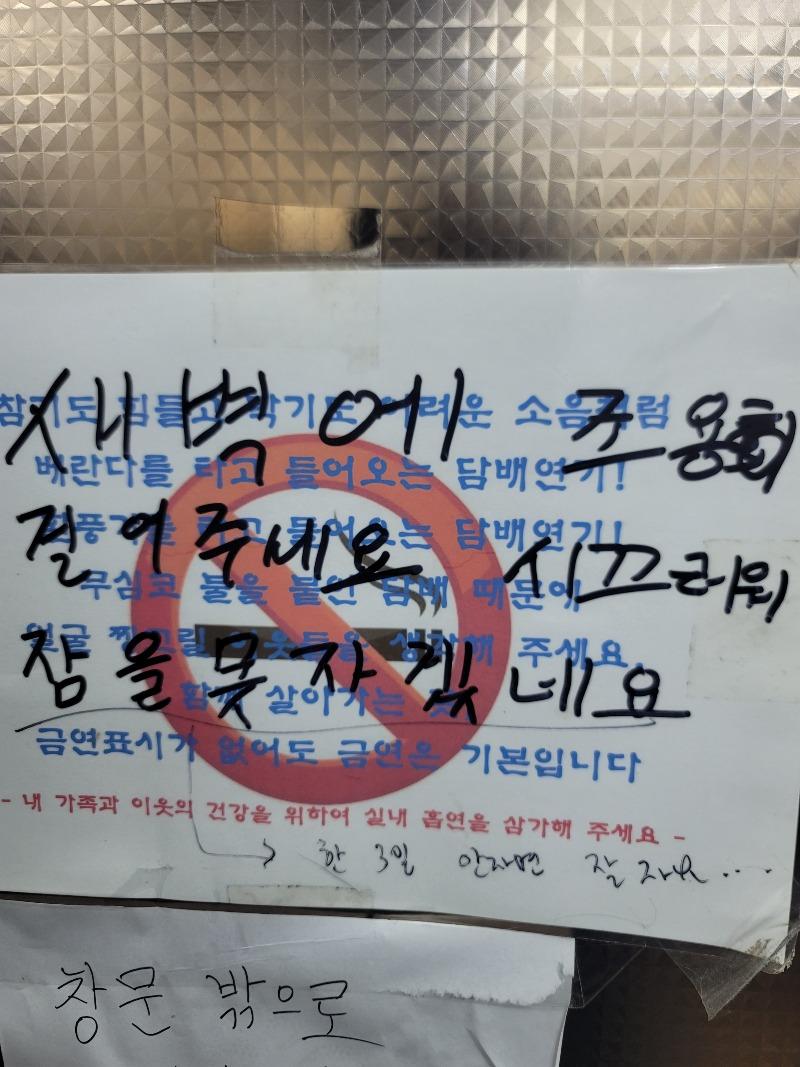 새벽에 주용히
걸어주세요 시끄러워
잠을 못 자겠네요
참기도 힘들고 막기도 어려운 소음처럼
베란다를 타고 들어오는 담배연기!
환풍기를 타고 들어오는 담배연기!
무심코 불을 붙인 담배 때문에
얼굴 찡그릴 이웃들을 생각해 주세요.
함께 살아가는 곳
금연표시가 없어도 금연은 기본입니다
- 내 가족과 이웃의 건강을 위하여 실내 흡연을 삼가해 주세요 -
한 3일 안자면 잘 자요....
창문 밖으로